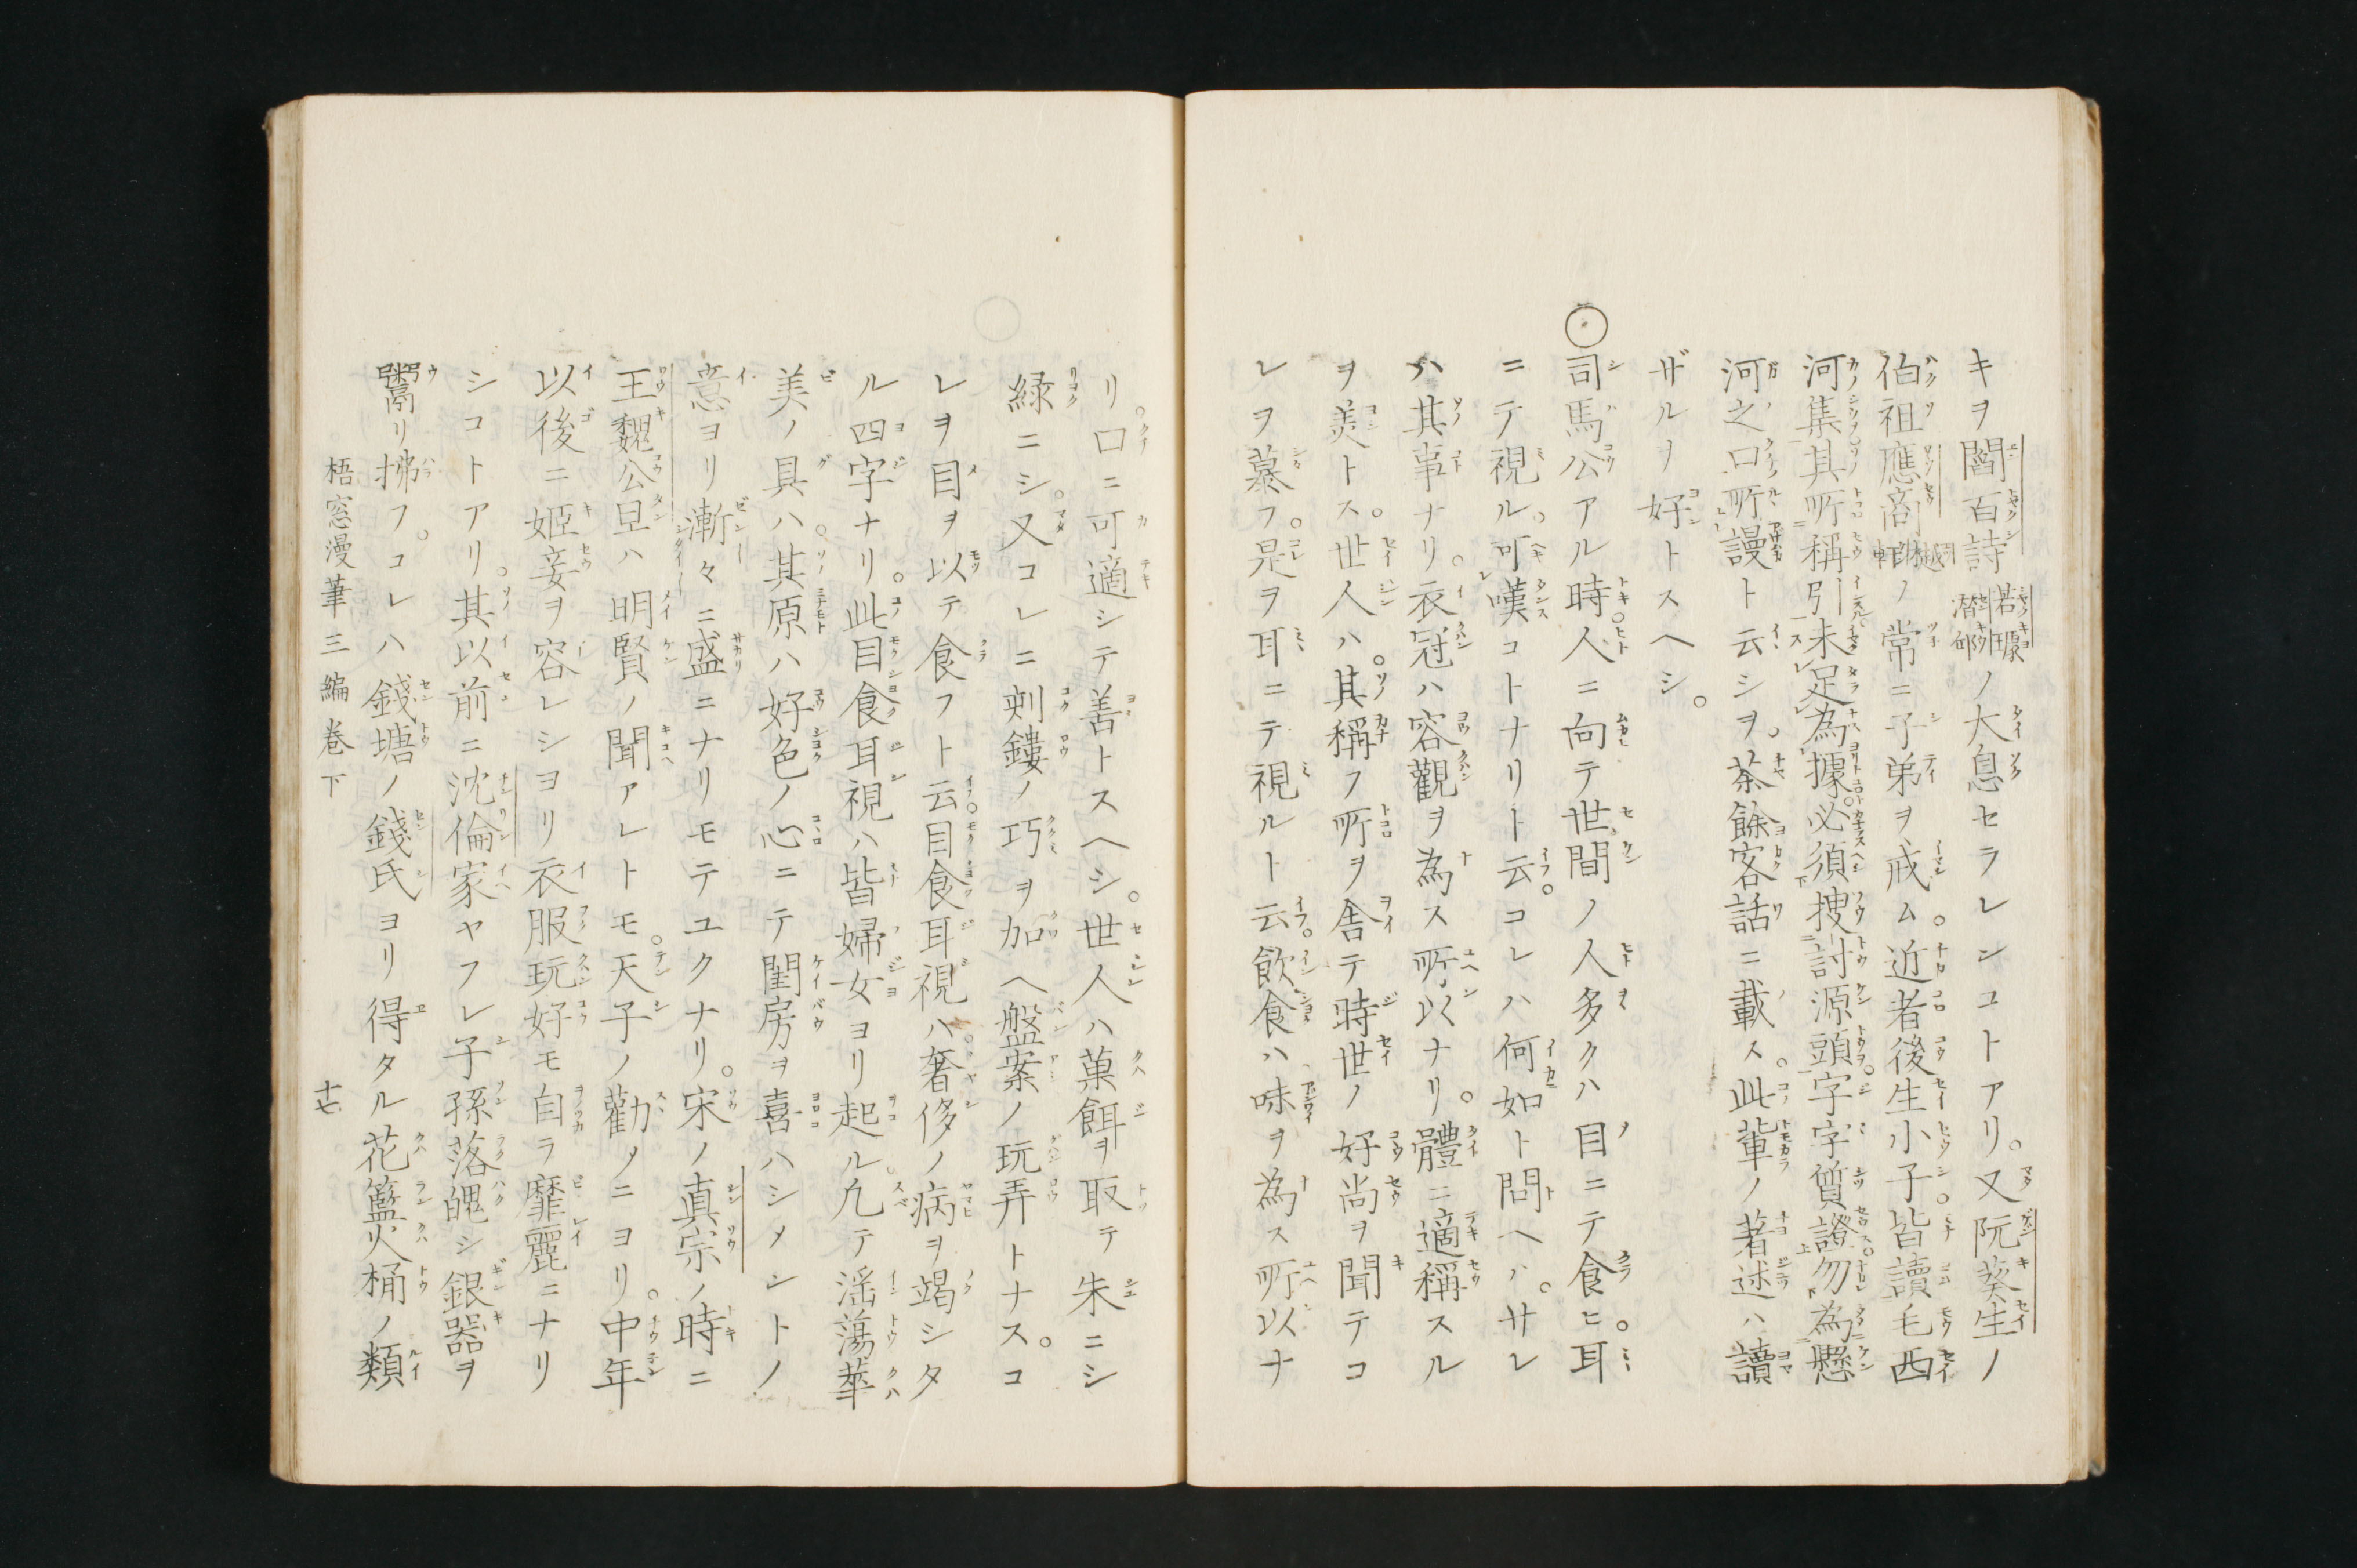 キヲ閻百詩若璩潜邱ノ大息セラレシコトアリ。又阮葵生ノ
伯祖應商ノ常ニ子弟ヲ戒ム。近者後生小子。皆讀毛西
河集其所稱引未足為據。必須捜討源頭。字字質證。勿為懸
河之口所謾ト云シヲ。茶餘客話ニ載ス。此輩ノ著述ハ讀
ザルヲ好トスヘシ。
○司馬公アル時。人ニ向テ世間ノ人多クハ目ニテ食ヒ。耳
ニテ視ル。可嘆コトナリト云。コレハ何如ト問ヘハ。サレ
ハ其事ナリ。衣冠ハ容觀ヲ為ス所以ナリ。體ニ適稱スル
ヲ美トス。世人ハ。其稱フ所ヲ舎テ時世ノ好尚ヲ聞テコ
レヲ慕フ。是ヲ耳ニテ視ルト云。飲食ハ味ヲ為ス所以ナ
リ。口ニ可適シテ善トスヘシ。世人ハ菓餌ヲ取テ朱ニシ
緑ニシ。又コレニ刻鏤ノ巧ヲ加ヘ盤案ノ玩弄トナス。コ
レヲ目ヲ以テ食フト云。目食耳視ハ。奢侈ノ病ヲ竭シタ
ル四字ナリ。此目食耳視ハ皆婦女ヨリ起ル。凢テ淫蕩華
美ノ具ハ。其原ハ好色ノ心ニテ閨房ヲ喜ハシメントノ
意ヨリ漸々ニ盛ニナリモテユクナリ。宋ノ真宗ノ時ニ
王魏公旦ハ明賢ノ聞アレトモ。天子ノ勸メニヨリ。中年
以後ニ姬妾ヲ容レシヨリ衣服玩好モ自ラ靡麗ニナリ
シコトアリ。其以前ニ沈倫家ヤフレ子孫落魄シ銀器ヲ
鬻リ拂フ。コレハ錢塘ノ錢氏ヨリ得タル花籃火桶ノ類
梧窓漫筆三編巻下 十七